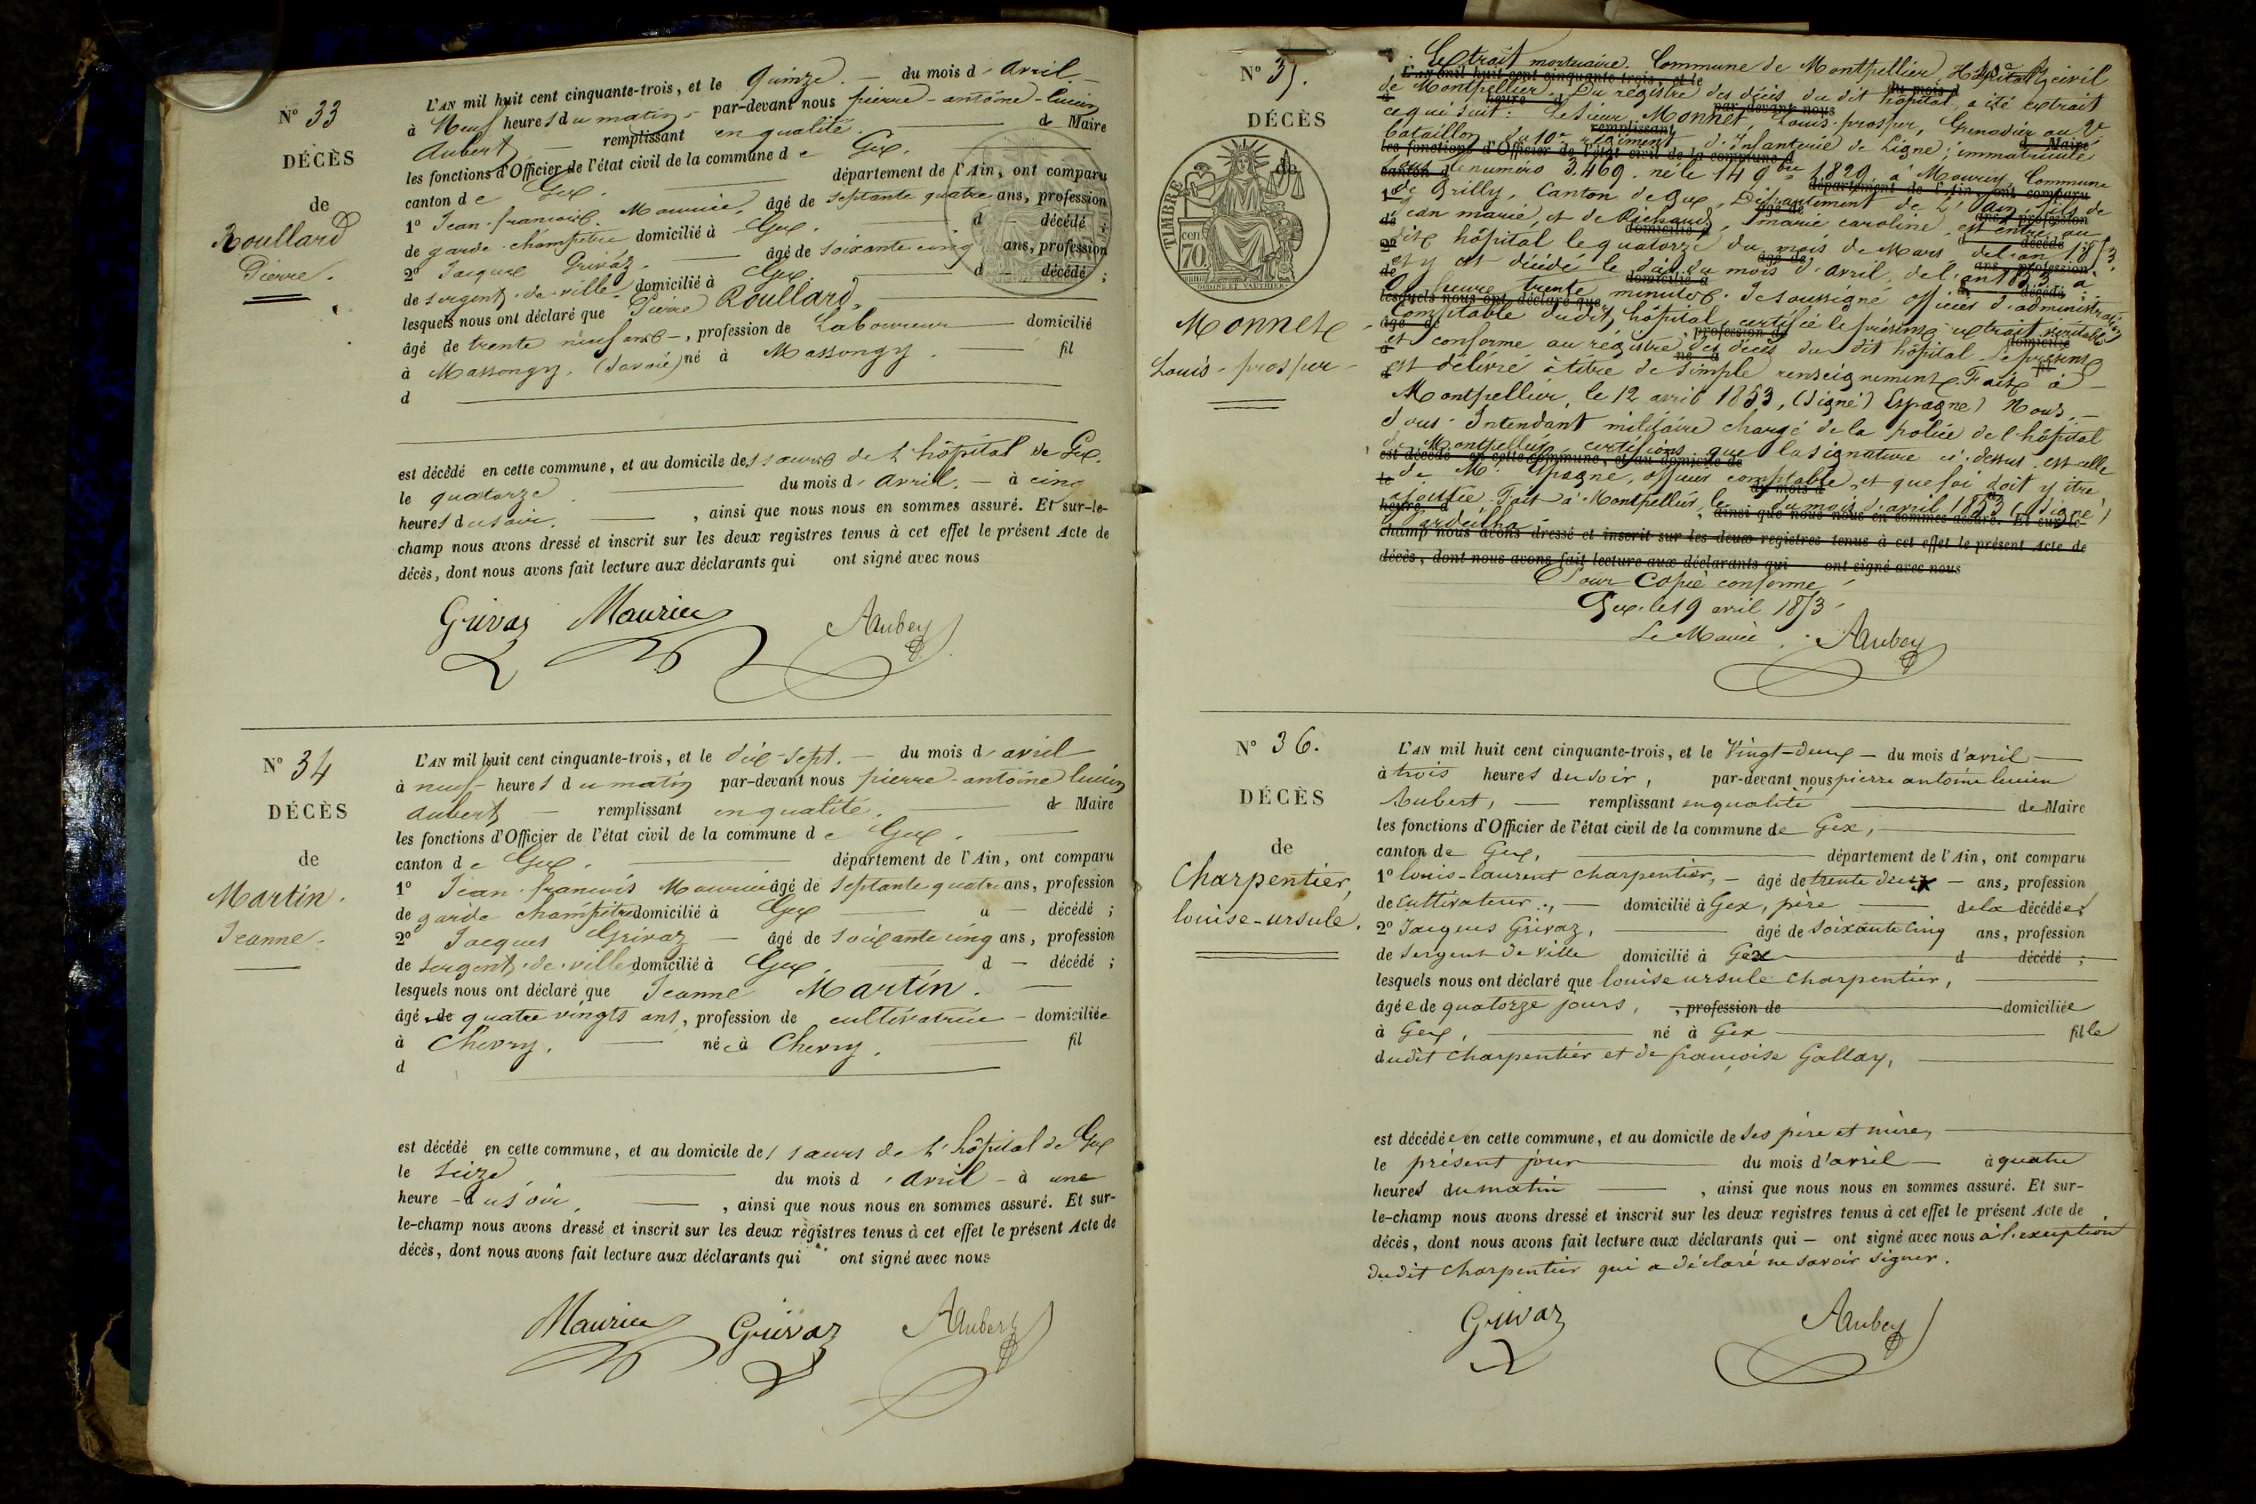 N° 33
DÉCÈS
de
Roullard
Pierre.
L'AN mil huit cent cinquante-trois, et le Quinze. — du mois d'avril. —
à Neuf heures du matin, par-devant nous pierre-antoine-lucien
Aubert — remplissant en qualité. — de Maire
les fonctions d'Officier de l'état civil de la commune de Gex.
canton de Gex. — département de l'Ain, ont comparu
1° Jean-françois Maurier, âgé de septante quatre ans, profession
de garde-champêtre domicilié à Gex. — d — décédé ;
2° Jacques Grivaz. — âgé de soixante cinq ans, profession
de sergent-de-ville, domicilié à Gex. — d — décédé ;
lesquels nous ont déclaré que Pierre Roullard,
âgé de trente neuf ans —, profession de Laboureur — domicilié
à Massongy, (Savoie) né à Massongy. — fil
d
est décédé en cette commune, et au domicile des sœurs de l'hôpital de Gex.
le quatorze — du mois d'avril. — à cinq
heures du soir. — , ainsi que nous nous en sommes assuré. Et sur-le-
champ nous avons dressé et inscrit sur les deux registres tenus à cet effet le présent Acte de
décès, dont nous avons fait lecture aux déclarants qui ont signé avec nous
Grivaz Maurier Aubert
N° 34
DÉCÈS
de
Martin.
Jeanne.
L'AN mil huit cent cinquante-trois, et le dix-sept. — du mois d'avril
à neuf heures du matin par-devant nous pierre-antoine lucien
aubert — remplissant en qualité. — de Maire
les fonctions d'Officier de l'état civil de la commune de Gex.
canton de Gex. — département de l'Ain, ont comparu
1° Jean-françois Maurier âgé de septante quatre ans, profession
de garde champêtre domicilié à Gex — d — décédé ;
2° Jacques Grivaz — âgé de soixante cinq ans, profession
de sergent-de-ville domicilié à Gex. — d — décédé ;
lesquels nous ont déclaré que Jeanne Martin. —
âgé de quatre vingts ans, profession de cultivatrice — domiciliée
à Chevry. — née à Chevry. — fil
d
est décédé en cette commune, et au domicile des sœurs de l'hôpital de Gex
le seize — du mois d'avril — à une
heure du soir, — , ainsi que nous nous en sommes assuré. Et sur-
le-champ nous avons dressé et inscrit sur les deux registres tenus à cet effet le présent Acte de
décès, dont nous avons fait lecture aux déclarants qui ont signé avec nous
Maurier Grivaz Aubert
N° 35.
DÉCÈS
TIMBRE
70 cent
Monnet
Louis-prosper
Extrait mortuaire. Commune de Montpellier, Hôpital civil
de Montpellier. Du régistre des décès du dit hôpital, a été extrait
ce qui suit : Le sieur Monnet, Louis-prosper, Grenadier au 2e
bataillon du 10e régiment d'Infanterie de Ligne, immatriculé
sous le numéro 3469. né le 14 9bre 1829, à Mourex, Commune
de Grilly, Canton de Gex, Département de l'Ain, fils de
Jean marie, et de Richaud, marie caroline, est entré au
dit hôpital le quatorze du mois de Mars de l'an 1853.
et y est décédé le dix du mois d'avril, de l'an 1853 à
heure trente minutes. Je soussigné officier d'administration
Comptable dudit hôpital, certifie le présent extrait véritable
et conforme au régistre des décès du dit hôpital. Le présent
est délivré à titre de simple renseignement. Fait à
Montpellier, le 12 avril 1853, (signé) Espagne) Nous, —
Sous-Intendant militaire chargé de la police de l'hôpital
de Montpellier, certifions que la signature ci-dessus est celle
de Mr Espagne, officier comptable, et que foi doit y être
ajoutée. Fait à Montpellier, le du mois d'avril 1853 (signé)
champ nous avons dressé et inscrit sur les deux registres tenus à cet effet le présent Acte de
décès, dont nous avons fait lecture aux déclarants qui ont signé avec nous
Pour Copie conforme
Gex, le 19 avril 1853.
Le Maire. Aubert
N° 36.
DÉCÈS
de
Charpentier,
louise-ursule.
L'AN mil huit cent cinquante-trois, et le Vingt-deux — du mois d'avril —
à trois heures du soir, par-devant nous pierre antoine lucien
Aubert, — remplissant en qualité — de Maire
les fonctions d'Officier de l'état civil de la commune de Gex, —
canton de Gex, — département de l'Ain, ont comparu
1° louis-laurent charpentier, — âgé de trente deux — ans, profession
de cultivateur, — domicilié à Gex, père — de la décédée ;
2° Jacques Grivaz, — âgé de soixante cinq ans, profession
de Sergent de Ville domicilié à Gex — d décédé ;
lesquels nous ont déclaré que louise ursule charpentier, —
âgée de quatorze jours, , profession de — domiciliée
à Gex, — né à Gex — fille
dudit charpentier et de françoise Gallay, —
est décédée en cette commune, et au domicile de ses père et mère, —
le présent jour — du mois d'avril — à quatre
heures du matin — , ainsi que nous nous en sommes assuré. Et sur-
le-champ nous avons dressé et inscrit sur les deux registres tenus à cet effet le présent Acte de
décès, dont nous avons fait lecture aux déclarants qui — ont signé avec nous à l'exception
dudit charpentier qui a déclaré ne savoir signer.
Grivaz Aubert